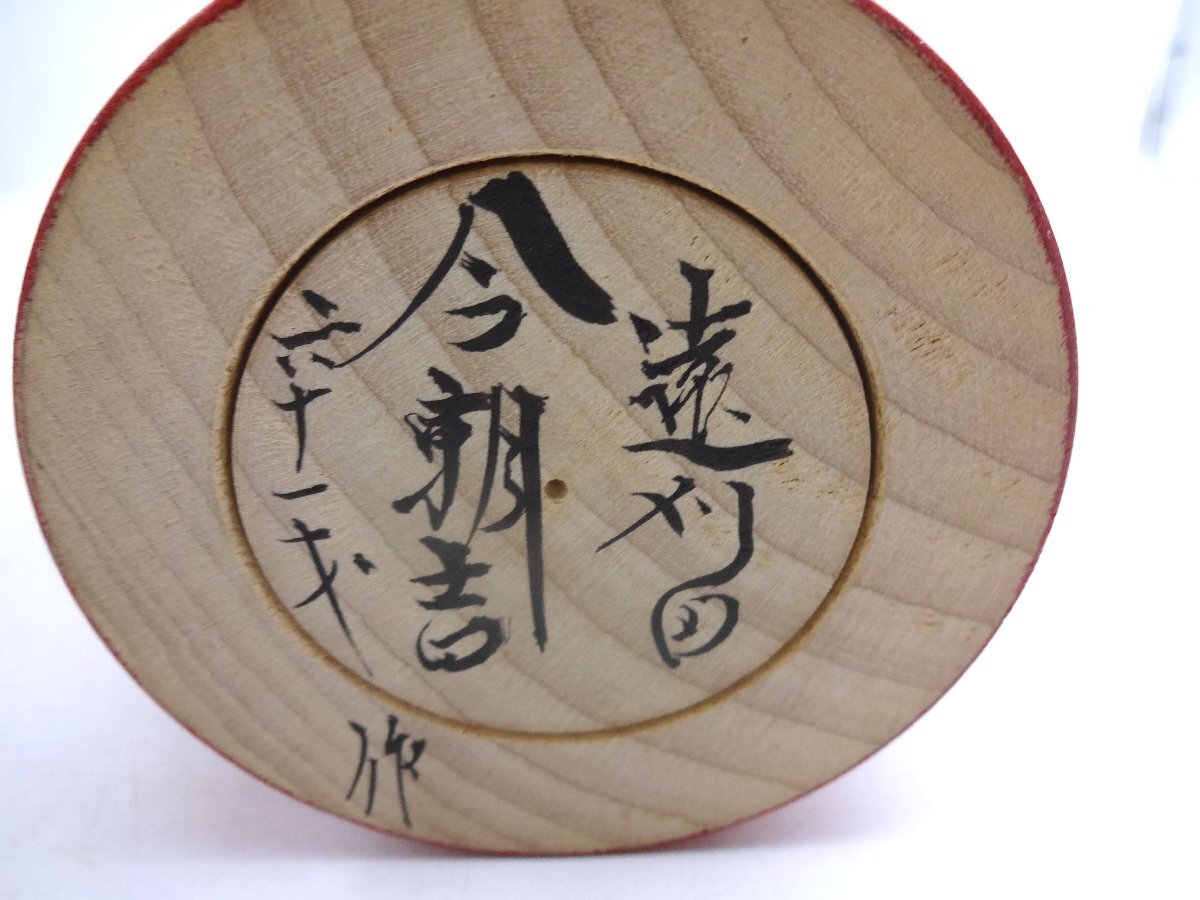 遠刈田
今朝吉
六十一才
作